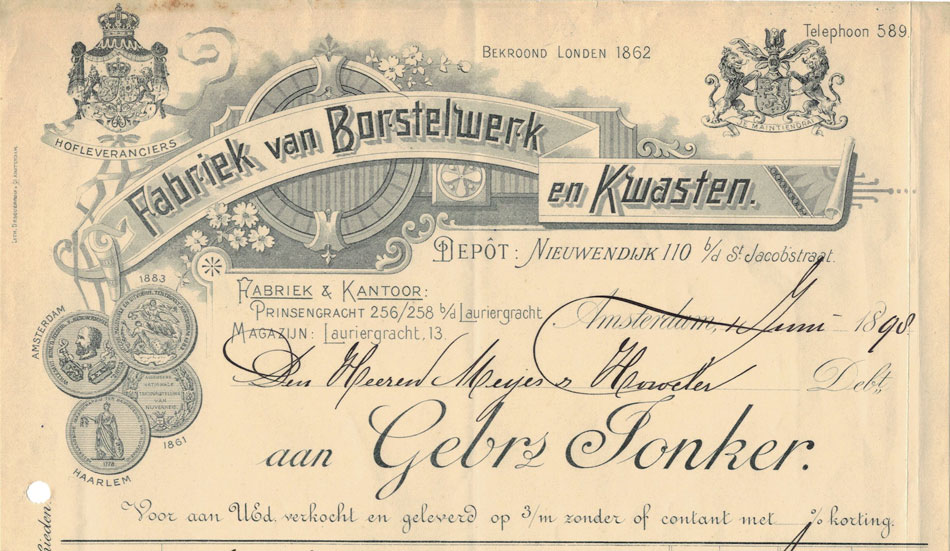 Telephoon 589.
BEKROOND LONDEN 1862
HOFLEVERANCIERS
JE MAINTIENDRAI
Fabriek van Borstelwerk
en Kwasten.
DEPÔT: NIEUWENDIJK 110 b/d St. Jacobstraat.
FABRIEK & KANTOOR:
PRINSENGRACHT 256/258 b/d Lauriergracht
MAGAZIJN: Lauriergracht, 13.
1883
AMSTERDAM
1861
HAARLEM
Amsterdam, 1 Juni 1898
Den Heeren Meijes & Höweler Debt.
aan Gebrs Jonker.
Voor aan UEd. verkocht en geleverd op 3/m zonder of contant met % korting.